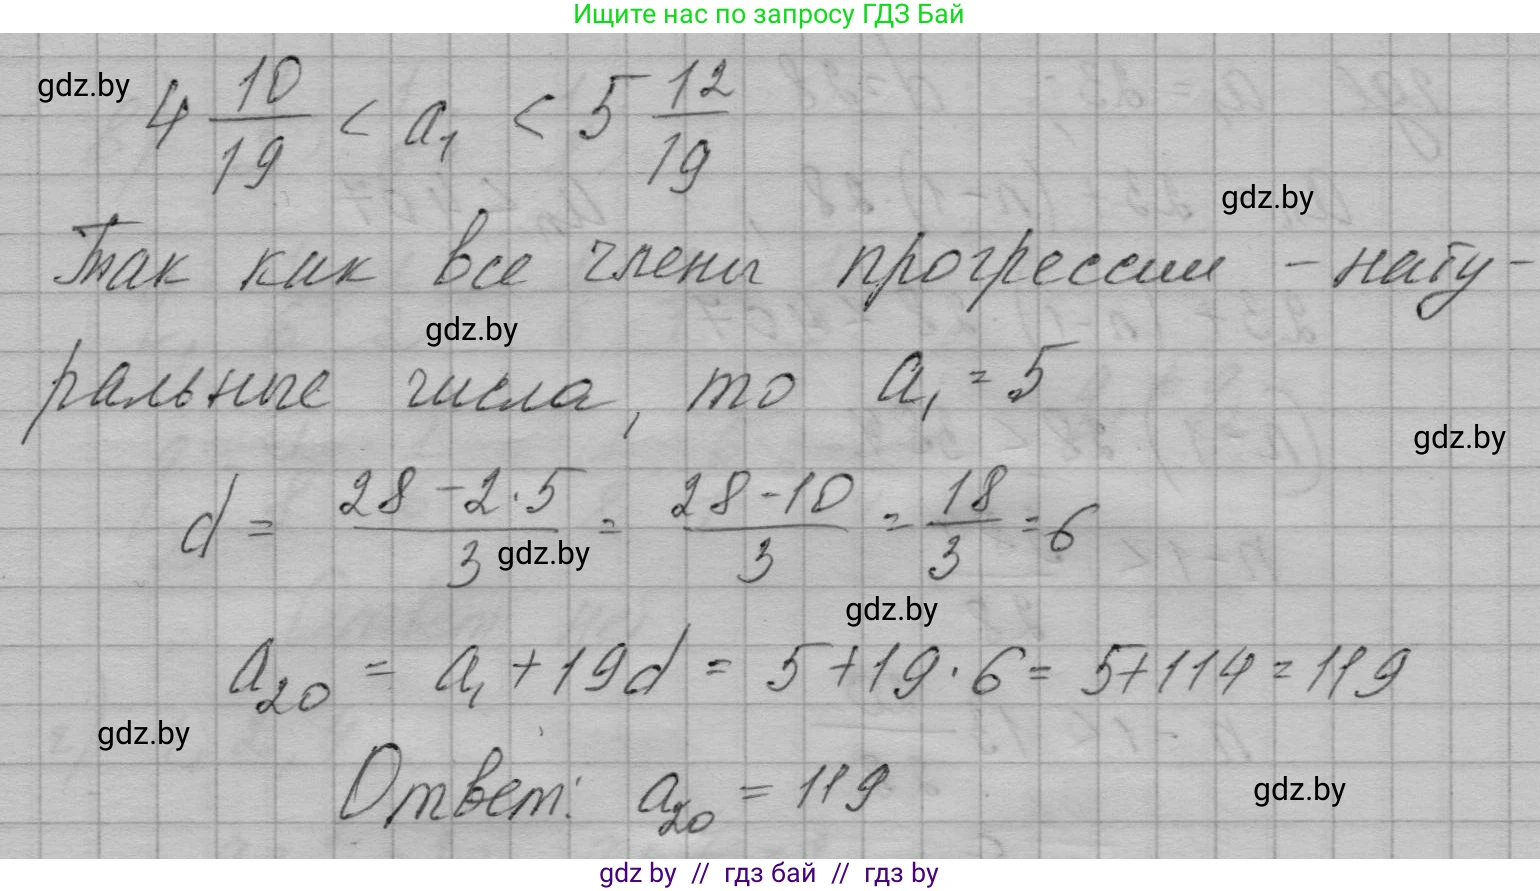 Ищите нас по запросу ГДЗ Бай
gdz.by
4 10/19 < a₁ < 5 12/19
gdz.by
Так как все члены прогрессии – нату-
gdz.by
ральные числа, то a₁ = 5
gdz.by
d = (28 - 2·5)/3 = (28 - 10)/3 = 18/3 = 6
gdz.by
gdz.by
a₂₀ = a₁ + 19d = 5 + 19·6 = 5 + 114 = 119
gdz.by
Ответ: a₂₀ = 119
gdz.by
gdz by // гдз бай // гдз by